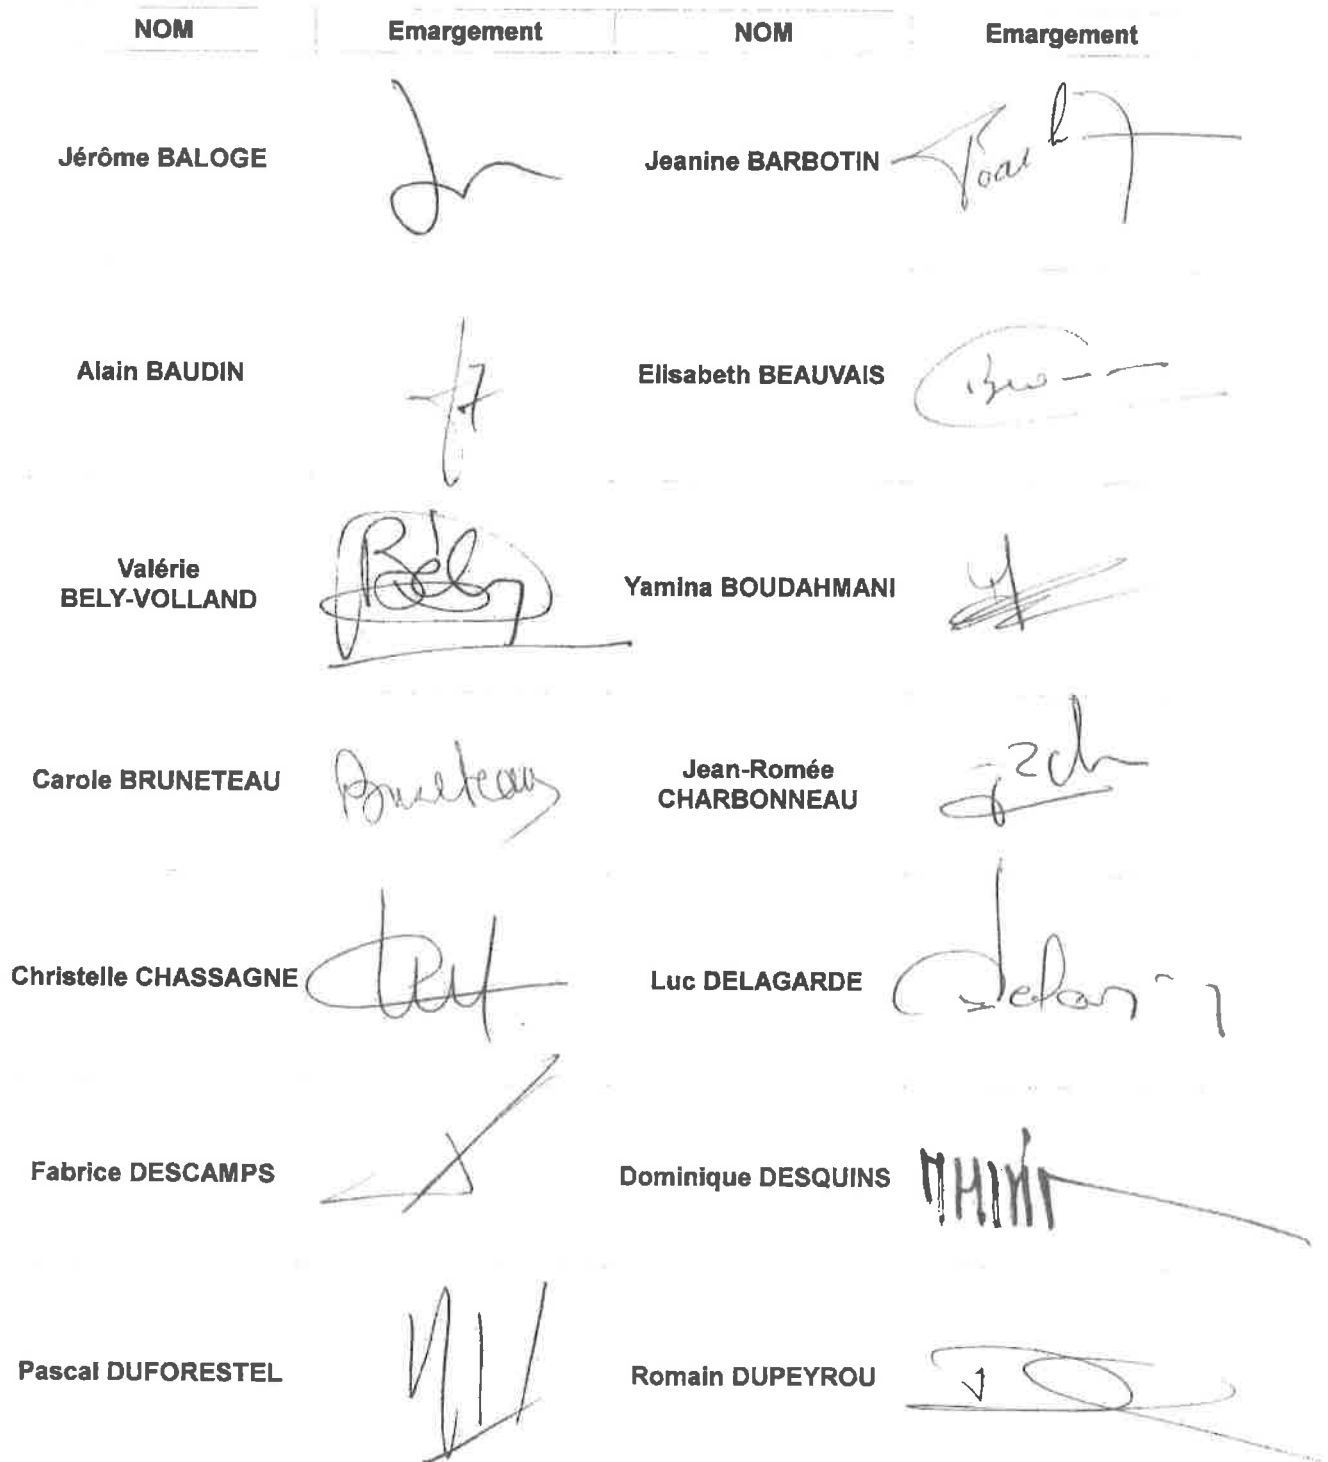 NOM Emargement NOM Emargement
Jérôme BALOGE Jeanine BARBOTIN
Alain BAUDIN Elisabeth BEAUVAIS
Valérie
BELY-VOLLAND Yamina BOUDAHMANI
Carole BRUNETEAU Bruneteau Jean-Romée
CHARBONNEAU
Christelle CHASSAGNE Luc DELAGARDE
Fabrice DESCAMPS Dominique DESQUINS
Pascal DUFORESTEL Romain DUPEYROU